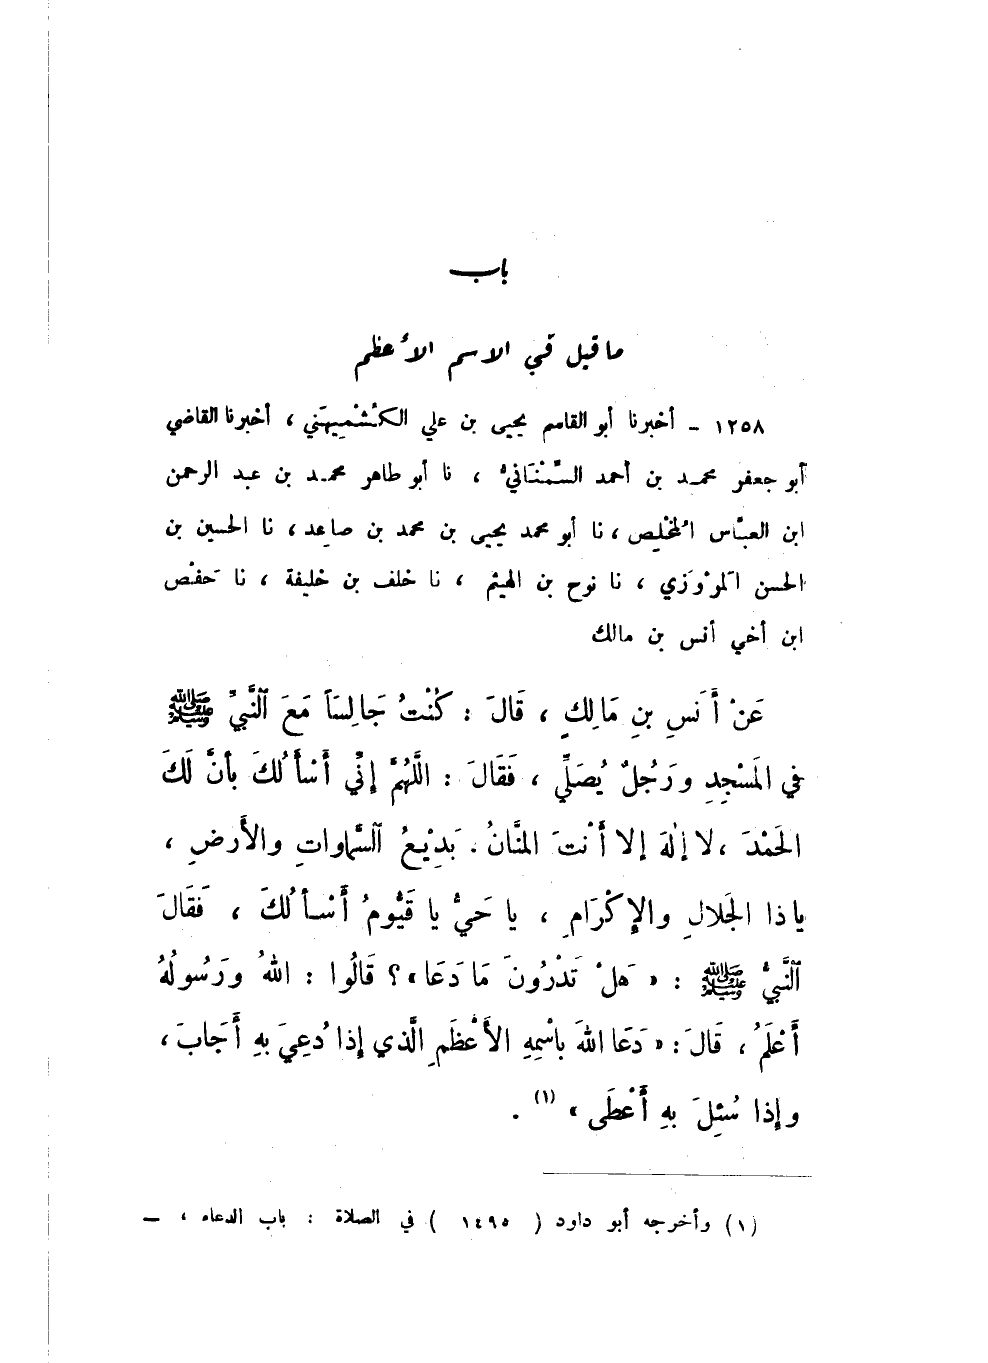 باب
ما قيل في الاسم الأعظم
١٢٥٨ ـ أخبرنا أبو القاسم يحيى بن علي الكُشْمِيهَني ، أخبرنا القاضي
أبو جعفر محمد بن أحمد السَّمْنَانيُّ ، نا أبو طاهر محمد بن عبد الرحمن
ابن العبَّاس المُخْلِص ، نا أبو محمد يحيى بن محمد بن صاعد ، نا الحسين بن
الحسن المَرْوَزي ، نا نوح بن الهيثم ، نا خلف بن خليفة ، نا حَفْص
ابن أخي أنس بن مالك
عَنْ أَنَسِ بنِ مَالِكٍ ، قَالَ : كُنْتُ جَالِسَاً مَعَ ٱلنَّبيِّ ﷺ
في المَسْجِدِ ورَجُلٌ يُصَلِّي ، فَقَالَ : اللَّهُمَّ إنِّي أَسْأَلُكَ بأنَّ لَكَ
الحَمْدَ ، لا إلٰهَ إلا أَنْتَ المنَّانُ . بَدِيْعُ ٱلسَّماواتِ والأَرضِ ،
ياذا الجَلالِ والإكْرَامِ ، يا حَيُّ يا قَيُّومُ أَسْأَلُكَ ، فَقَالَ
ٱلنَّبيُّ ﷺ : « هَلْ تَدْرُونَ مَا دَعَا » ؟ قَالُوا : اللهُ ورَسُولُهُ
أَعْلَمُ ، قَالَ : « دَعَا اللهَ باسْمِهِ الأَعْظَمِ الَّذي إذا دُعِيَ بهِ أَجَابَ ،
وإذا سُئِلَ بهِ أَعْطَى » (١) .
(١) وأخرجه أبو داود ( ١٤٩٥ ) في الصلاة : باب الدعاء ، ـ